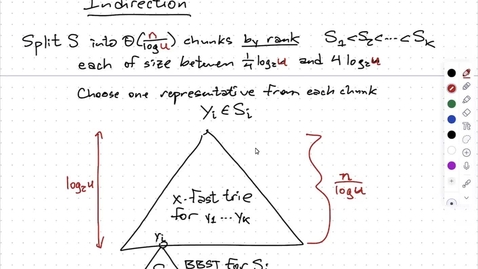 Indirection
Split S into Θ(n/log u) chunks by rank S₁<S₂<···<Sₖ
each of size between ¼ log₂u and 4 log₂u
Choose one representative from each chunk
yᵢ ∈ Sᵢ
log₂u
x-fast trie
for y₁ ··· yₖ
n/log u
yᵢ
BBST for Sᵢ